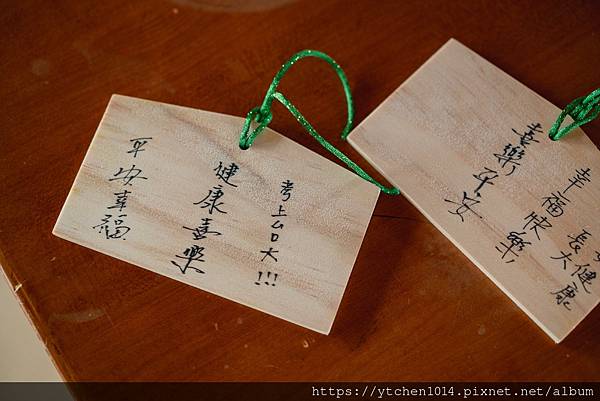 考上台大!!!
健康喜樂
平安幸福
健康
長大
幸福快樂,
喜樂平安
https://ytchen1014.pixnet.net/album